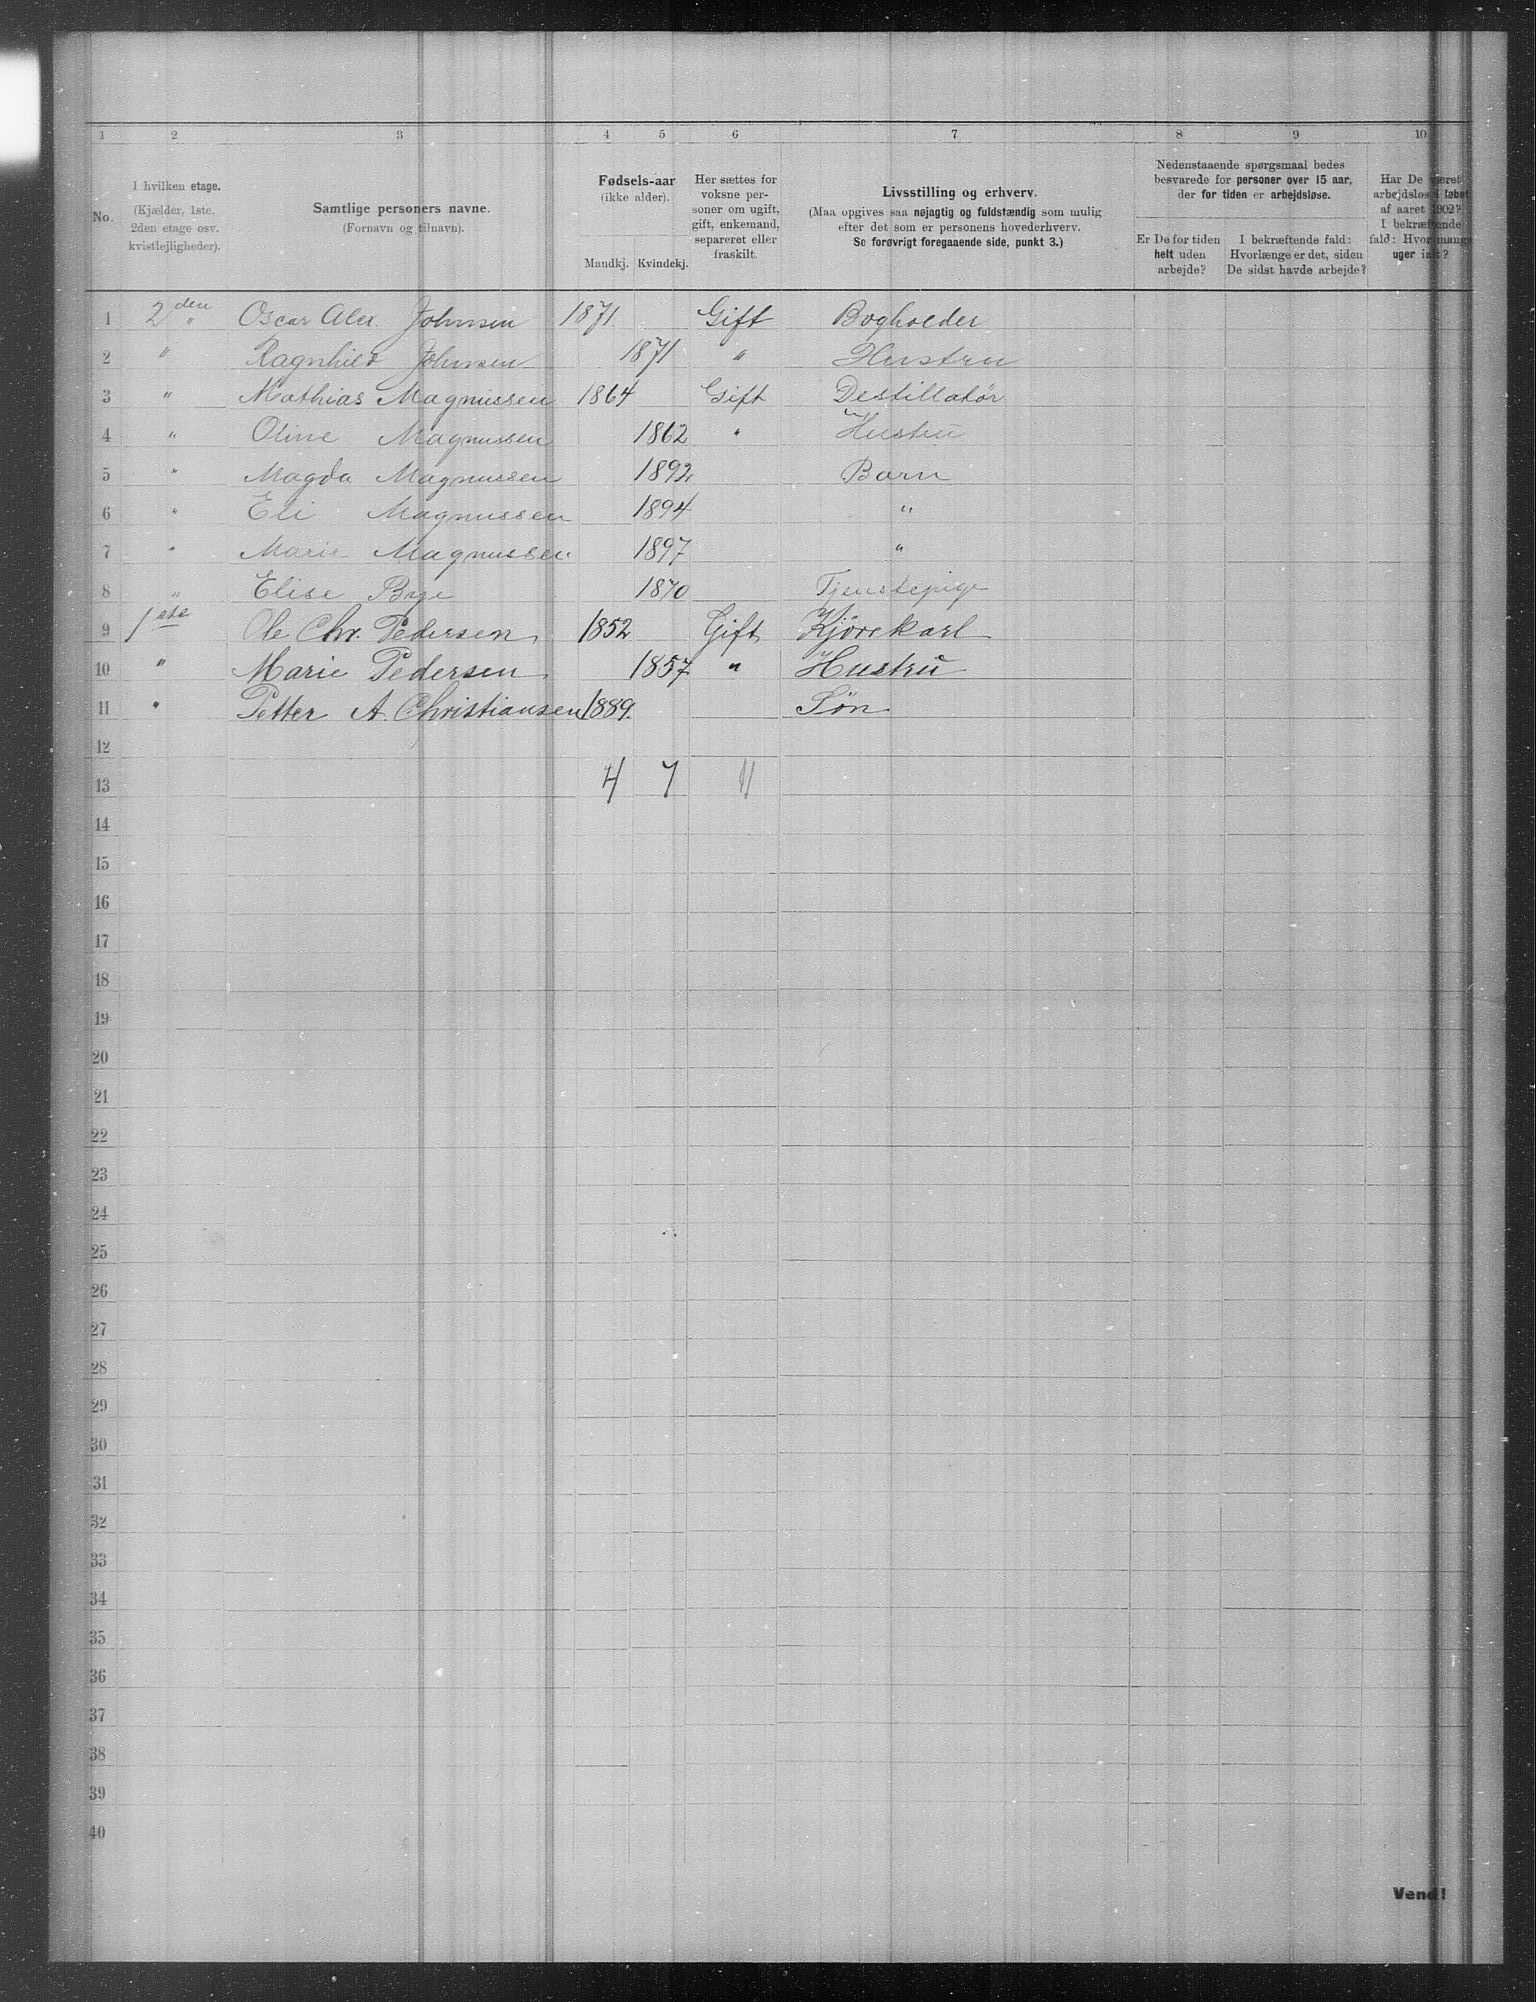 1 2 3 4 5 6 7 8 9 10
No.
I hvilken etage.
(Kjælder, 1ste,
2den etage osv.
kvistlejligheder).
Samtlige personers navne.
(Fornavn og tilnavn).
Fødsels-aar
(ikke alder).
Mandkj. Kvindekj.
Her sættes for
voksne per-
soner om ugift,
gift, enkemand,
separeret eller
fraskilt.
Livsstilling og erhverv.
(Maa opgives saa nøjagtig og fuldstændig som mulig
efter det som er personens hovederhverv.
Se forøvrigt foregaaende side, punkt 3.)
Nedenstaaende spørgsmaal bedes
besvarede for personer over 15 aar,
der for tiden er arbejdsløse.
Er De for tiden
helt uden
arbejde?
I bekræftende fald:
Hvorlænge er det, siden
De sidst havde arbejde?
Har De været
arbejdsløs i løbet
af aaret 1902?
I bekræftende
fald: Hvor mange
uger ialt?
1 2den " Oscar Alex. Johnsen 1871. Gift Bogholder
2 " Ragnhild Johnsen 1871 " Hustru
3 " Mathias Magnussen 1864 Gift Destillatør
4 " Oline Magnussen 1862 " Hustru
5 " Magda Magnussen 1892 Barn
6 " Eli Magnussen 1894 "
7 " Marie Magnussen 1897 "
8 " Elise Bye 1870 Tjenstepige
9 1ste Ole Chr. Pedersen 1852 Gift Kjørekarl
10 " Marie Pedersen 1857 " Hustru
11 " Petter A. Christiansen 1889. Søn
12
13 4 7 11
14
15
16
17
18
19
20
21
22
23
24
25
26
27
28
29
30
31
32
33
34
35
36
37
38
39
40
Vend!